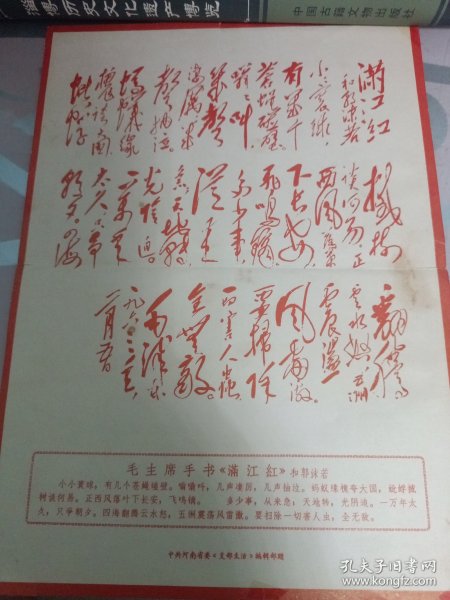 淄博历史文化遗产博览
中国古籍文物出版社
满江红
和郭沫若
小小寰球,
有几个
苍蝇碰壁
嗡嗡叫
几声
凄厉几
声抽泣
蚂蚁缘
槐夸大国
蚍蜉
撼树
谈何易正
西风落叶
下长安
飞鸣镝
多少事
从来
急天地转
光阴迫
一万年
太久只争
朝夕四海
翻腾
云水怒五洲
震荡
风雷激
要扫除
一切害人虫
全无敌
毛泽东
一九六三年
二月五日
毛主席手书《滿江紅》和郭沫若
小小寰球,有几个苍蝇碰壁。嗡嗡叫,几声凄厉,几声抽泣。蚂蚁缘槐夸大国,蚍蜉撼
树谈何易。正西风落叶下长安,飞鸣镝。 多少事,从来急,天地转,光阴迫。一万年太
久,只争朝夕。四海翻腾云水怒,五洲震荡风雷激。要扫除一切害人虫,全无敌。
中共河南省委《支部生活》编辑部赠
孔夫子旧书网